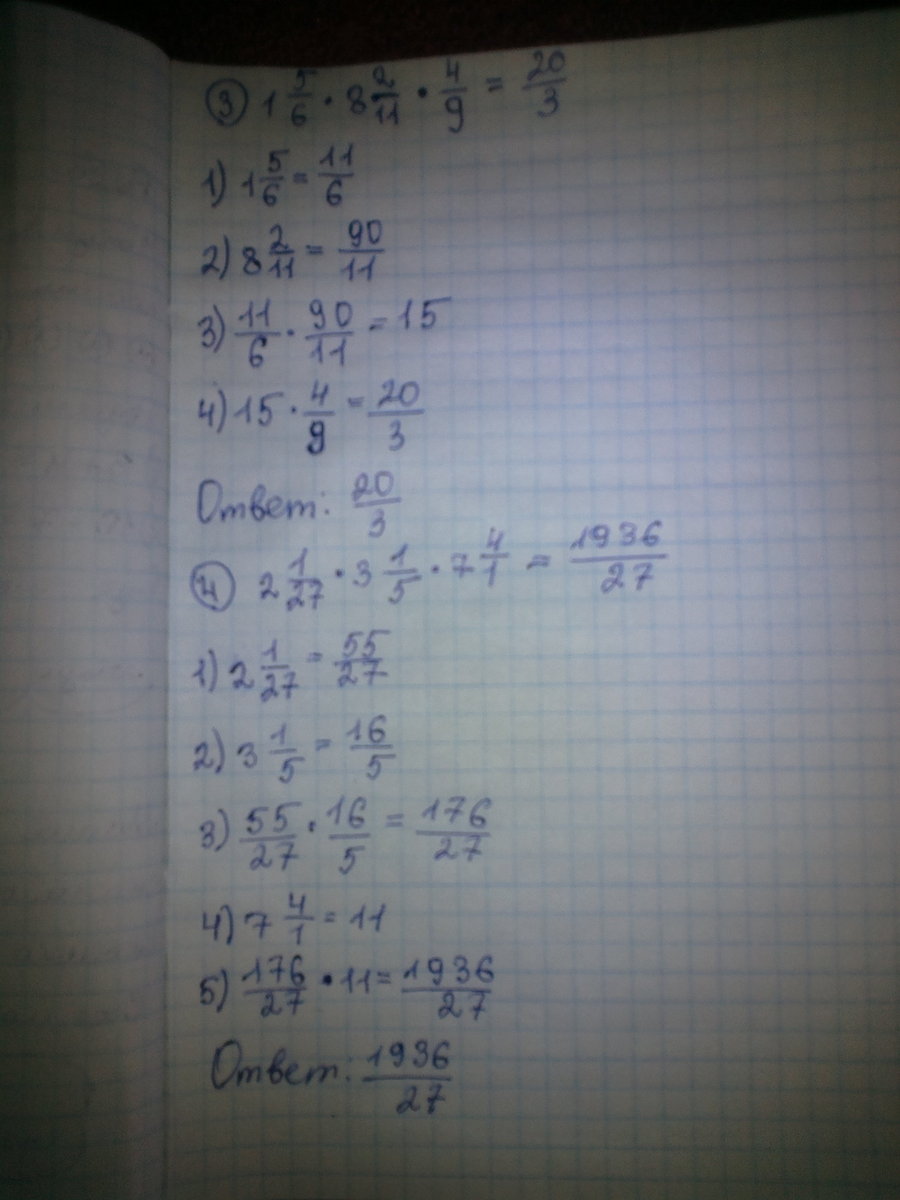 ③ 1 5/6 · 8 2/11 · 4/9 = 20/3
1) 1 5/6 = 11/6
2) 8 2/11 = 90/11
3) 11/6 · 90/11 = 15
4) 15 · 4/9 = 20/3
Ответ: 20/3
④ 2 1/27 · 3 1/5 · 7 4/1 = 1936/27
1) 2 1/27 = 55/27
2) 3 1/5 = 16/5
3) 55/27 · 16/5 = 176/27
4) 7 4/1 = 11
5) 176/27 · 11 = 1936/27
Ответ: 1936/27